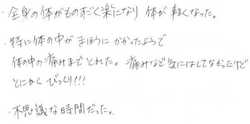 ・全身の体がものすごく楽になり 体が軽くなった。
・特に体の中が まほうに かかったようで
体の中が痛みまでとれた。痛みなど気にはしてなかったけど
とにかく びっくり!!!
・不思議な時間だった。